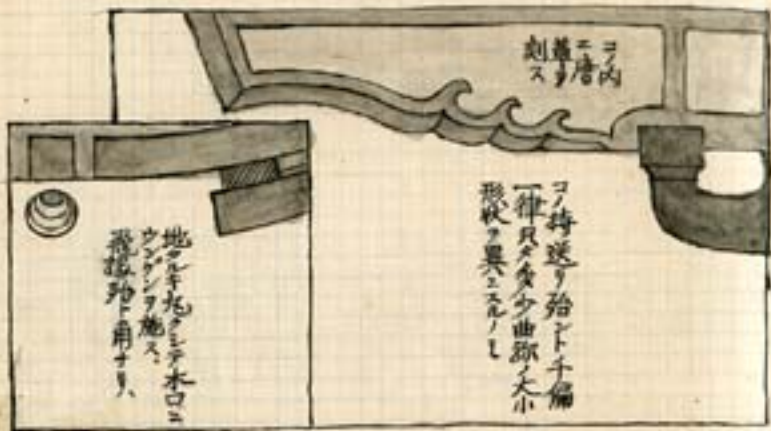 コノ内
ニ唐
草ヲ
刻ス
コノ持送リ殆ンド千偏
一律只タ多少曲線ノ大小
形状ヲ異ニスルノミ
地タルキ丸クシテ木口ニ
ウンゲンヲ施ス、
飛檐殆ト角ナリ、